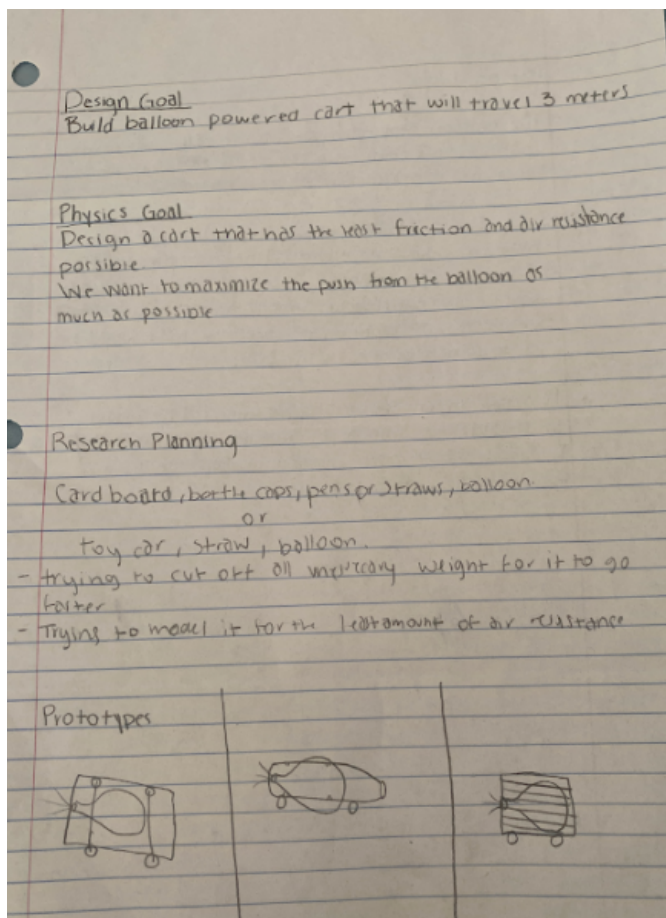 Design Goal
Build balloon powered cart that will travel 3 meters
Physics Goal
Design a cart that has the least friction and air resistance
possible
We want to maximize the push from the balloon as
much as possible
Research Planning
Card board, bottle caps, pens or straws, balloon.
or
toy car, straw, balloon.
- trying to cut off all weight for it to go
faster
- Trying to model it for the least amount of air resistance
Prototypes